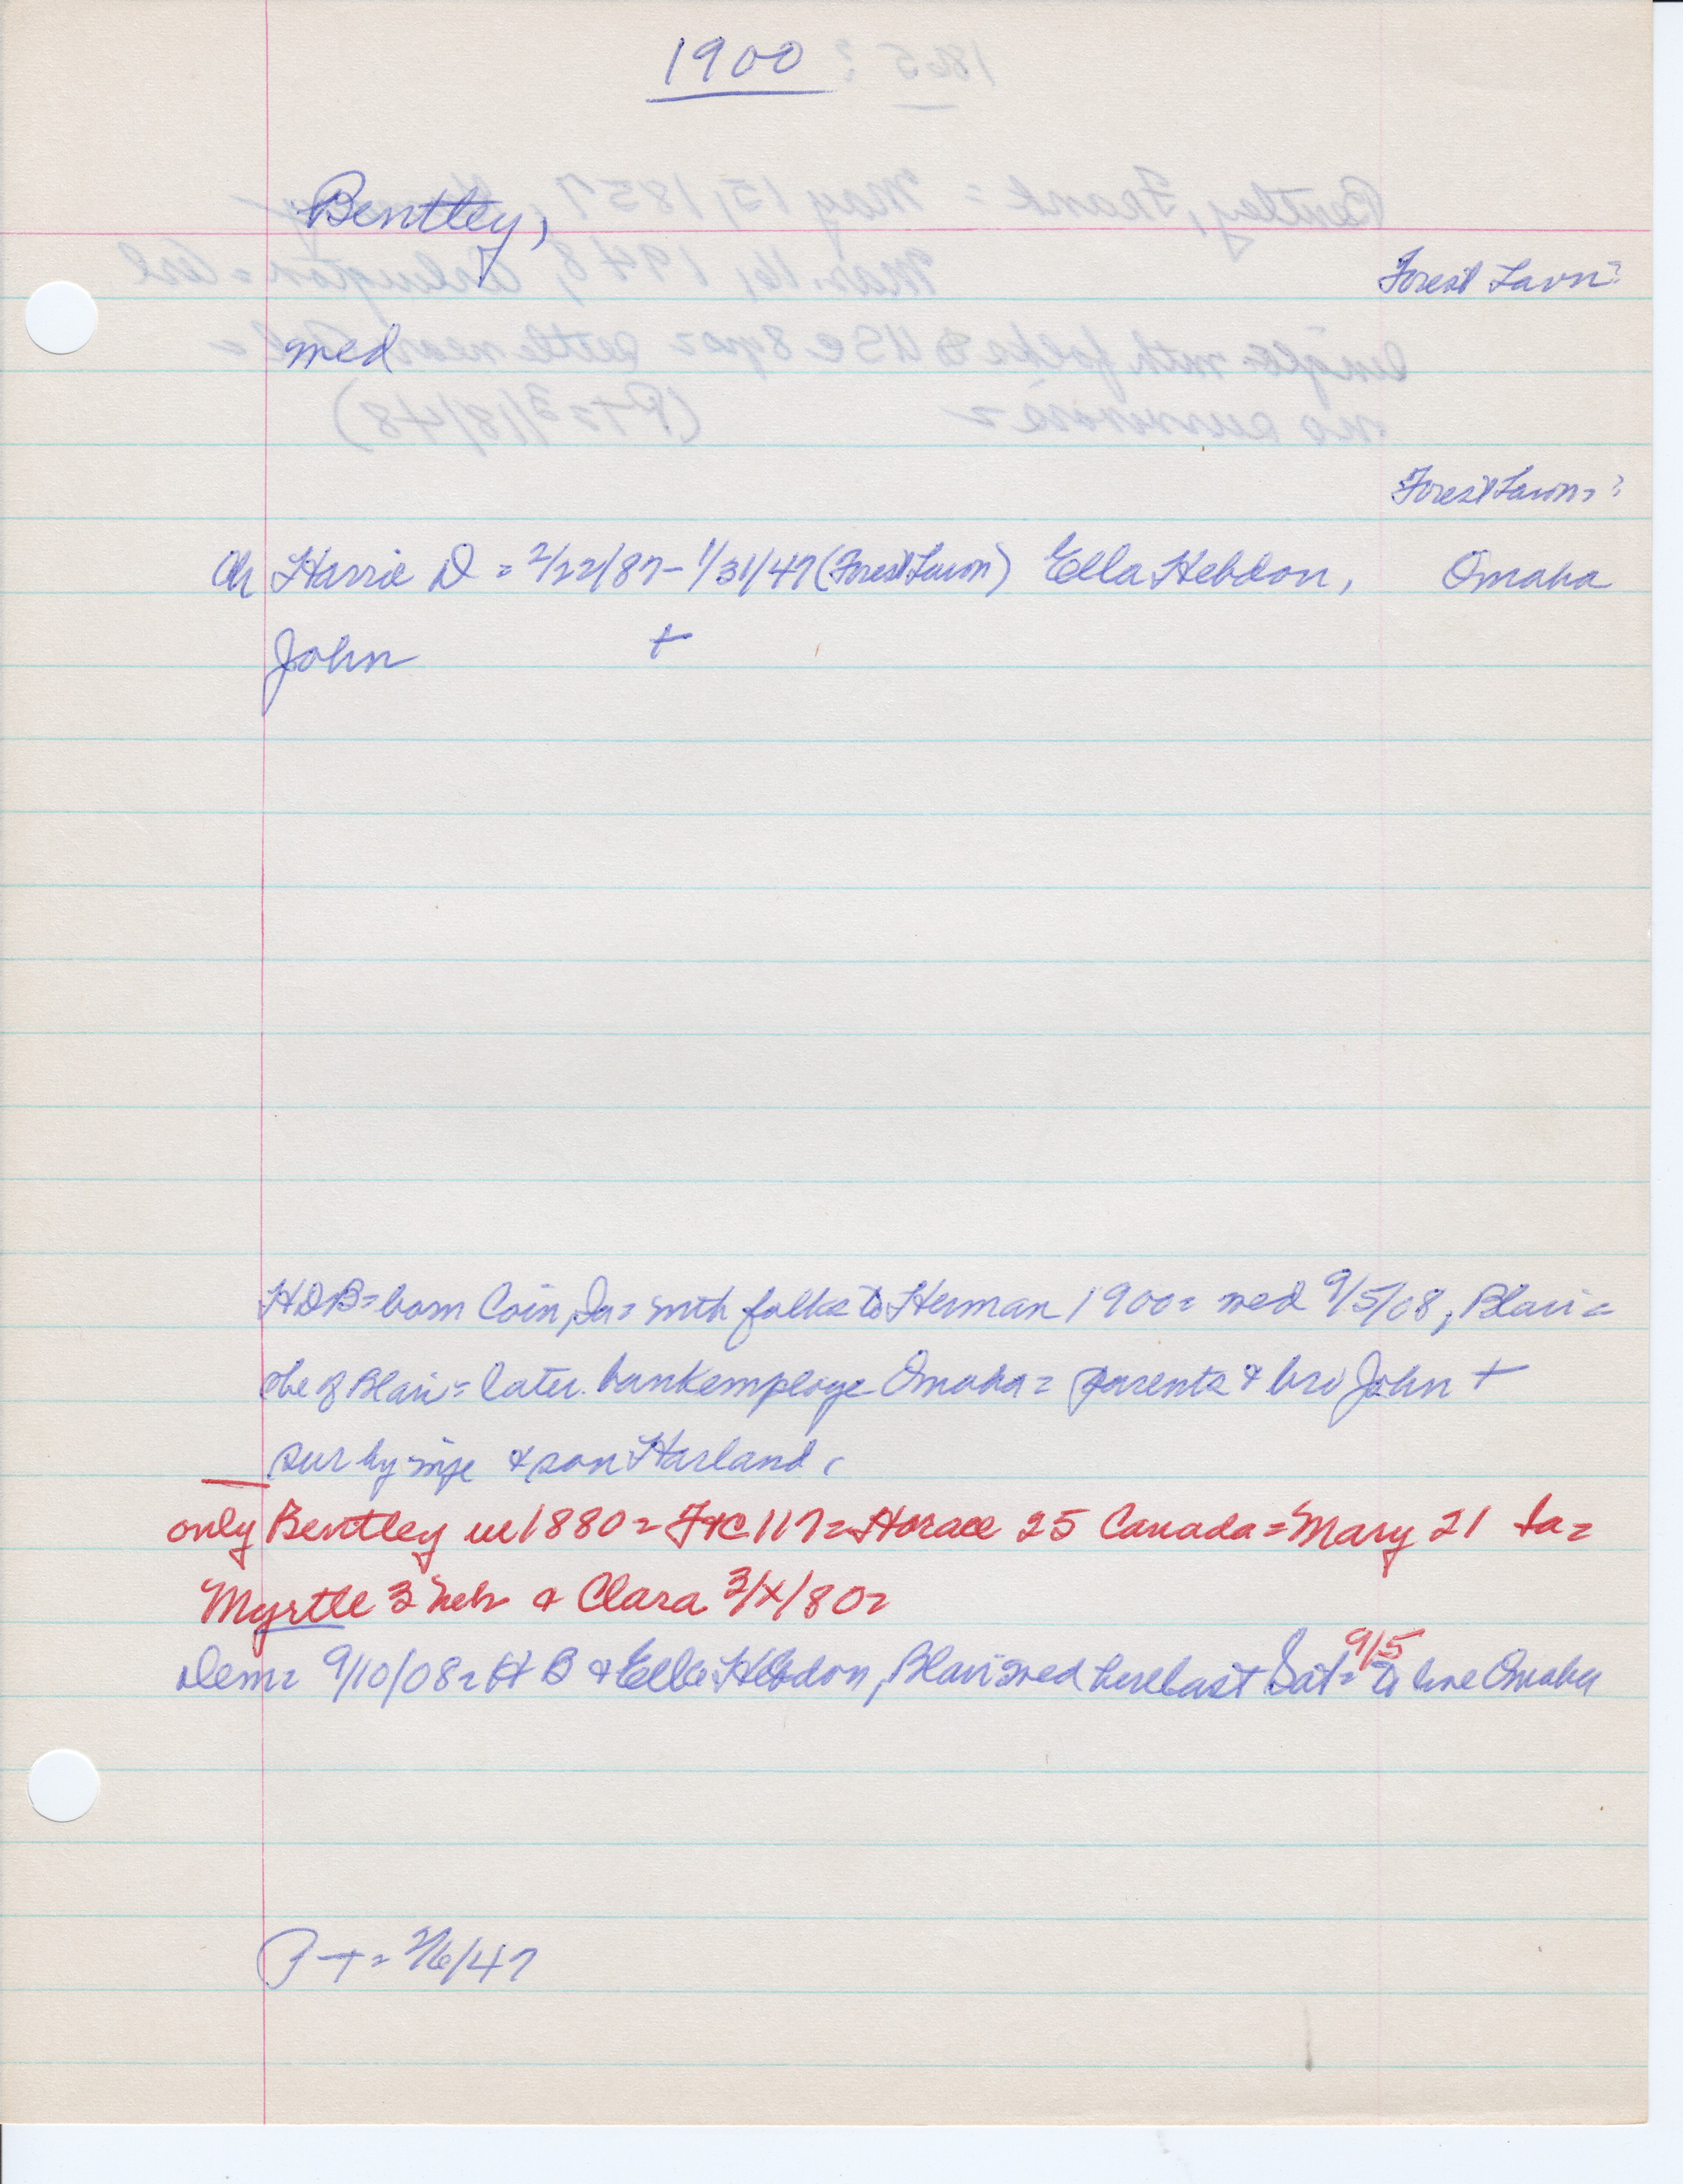 1900
Bentley,
Forest Lawn?
med
Forest Lawn = ?
Ch Harrie D = 2/22/87 - 1/31/47 (Forest Lawn) Ella Hebdon, Omaha
John +
HDB = born Coin, Ia = with folks to Herman 1900 = med 9/5/08, Blair =
she of Blair = later bank employe Omaha = parents & bro John +
sur by wife & son Harland.
only Bentley in 1880 = F+C 117 = Horace 25 Canada = Mary 21 Ia =
Myrtle 3 Neb & Clara 3/X/80 =
9/5
Dem = 9/10/08 = H B & Ella Hebdon, Blair med here last Sat = to live Omaha
P-T = 2/6/47